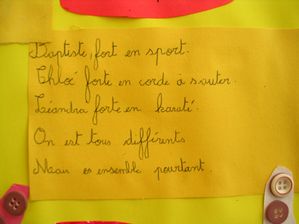 Baptiste, fort en sport.
Chloé forte en corde à sauter.
Léandra forte en karaté.
On est tous différents
Mais es ensemble pourtant.